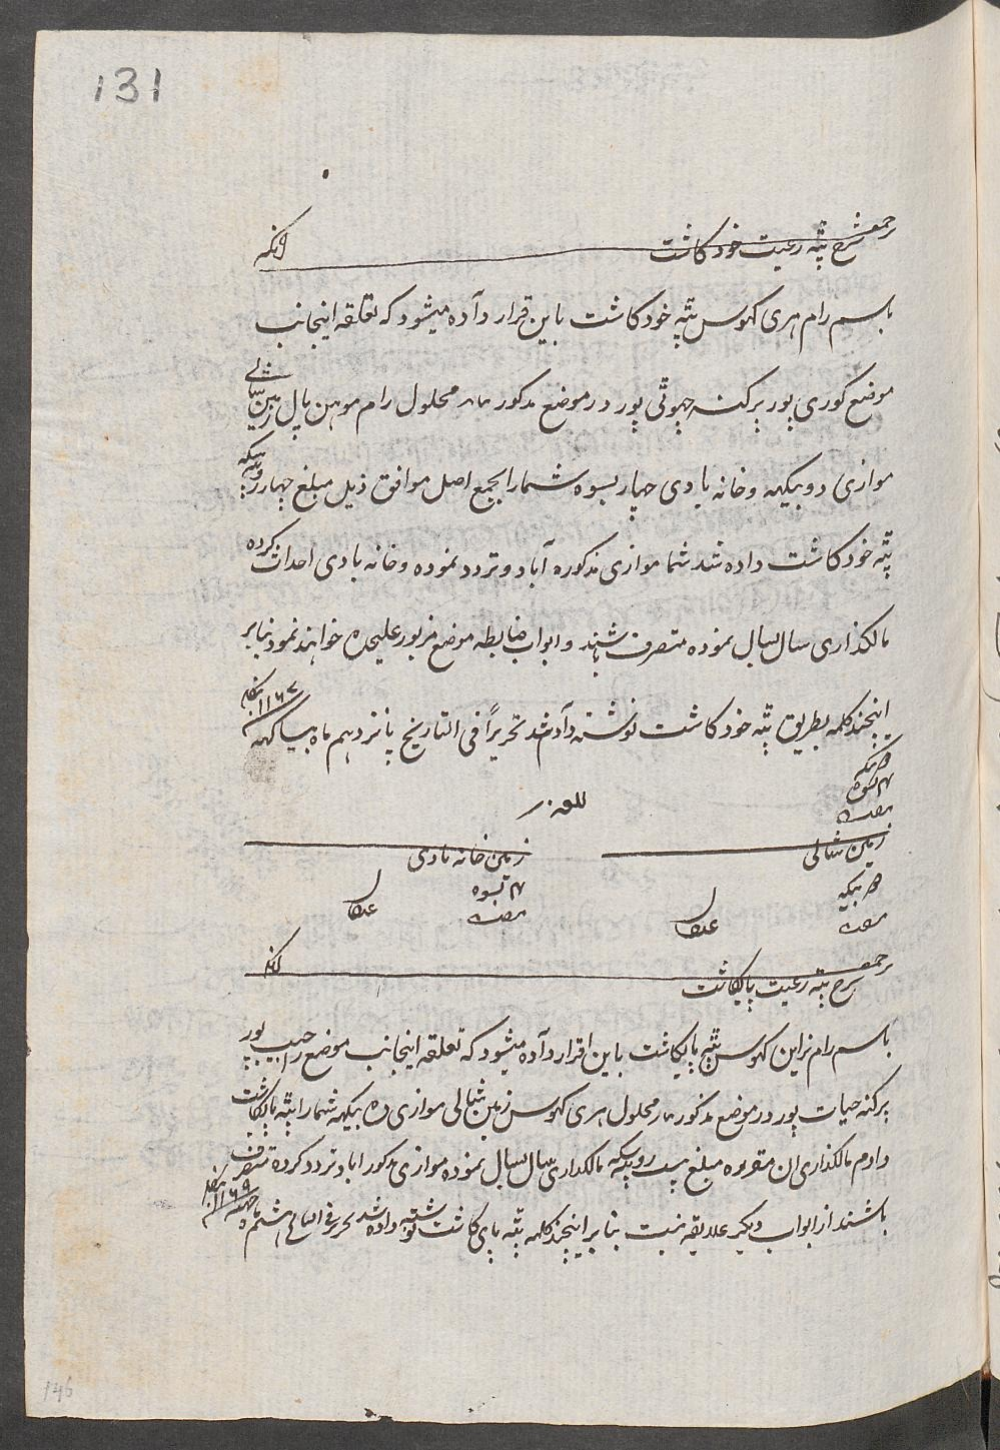 131
شرح پته رعیت خودکاشت
باسم رام هری کهوس پته خودکاشت باین قرار داده میشود که تعلقه اینجانب
موضع کوری پور پرکنه چهوتی پور در موضع مذکور محلول رام موهن پال زمین شالی
موازی دو بیکهه و خانه بادی چهار بسوه شمارا بجمع اصل موافق ذیل مبلغ چهار روپیه
پته خودکاشت داده شد شما موازی مذکوره آباد و تردد نموده و خانه بادی احداث کرده
مالکذاری سال بسال نموده متصرف باشند و ابواب ضابطه موضع مزبور علیحده خواهند نمود بنابر
اینچند کلمه بطریق پته خودکاشت نوشته داده شد تحریراً فی التاریخ پانزدهم ماه بیساکهه ۱۱۶۷
زمین شالی
زمین خانه بادی
شرح پته رعیت پایکاشت
باسم رام نراین کهوس پته پایکاشت باین اقرار داده میشود که تعلقه اینجانب موضع حبیب پور
پرکنه حیات پور در موضع مذکور محلول هری کهوس زمین شالی موازی ده بیکهه شمارا پته پایکاشت
دادم مالکذاری ان مقرره مبلغ بیست روپیه سکه مالکداری سال بسال نموده موازی مذکور اباد تردد کرده متصرف
باشند از ابواب دیکر علاقه نیست بنابر اینچند کلمه پته پای کاشت نوشته داده شد تحریر فی التاریخ هشتم ماه ۱۱۶۹
146